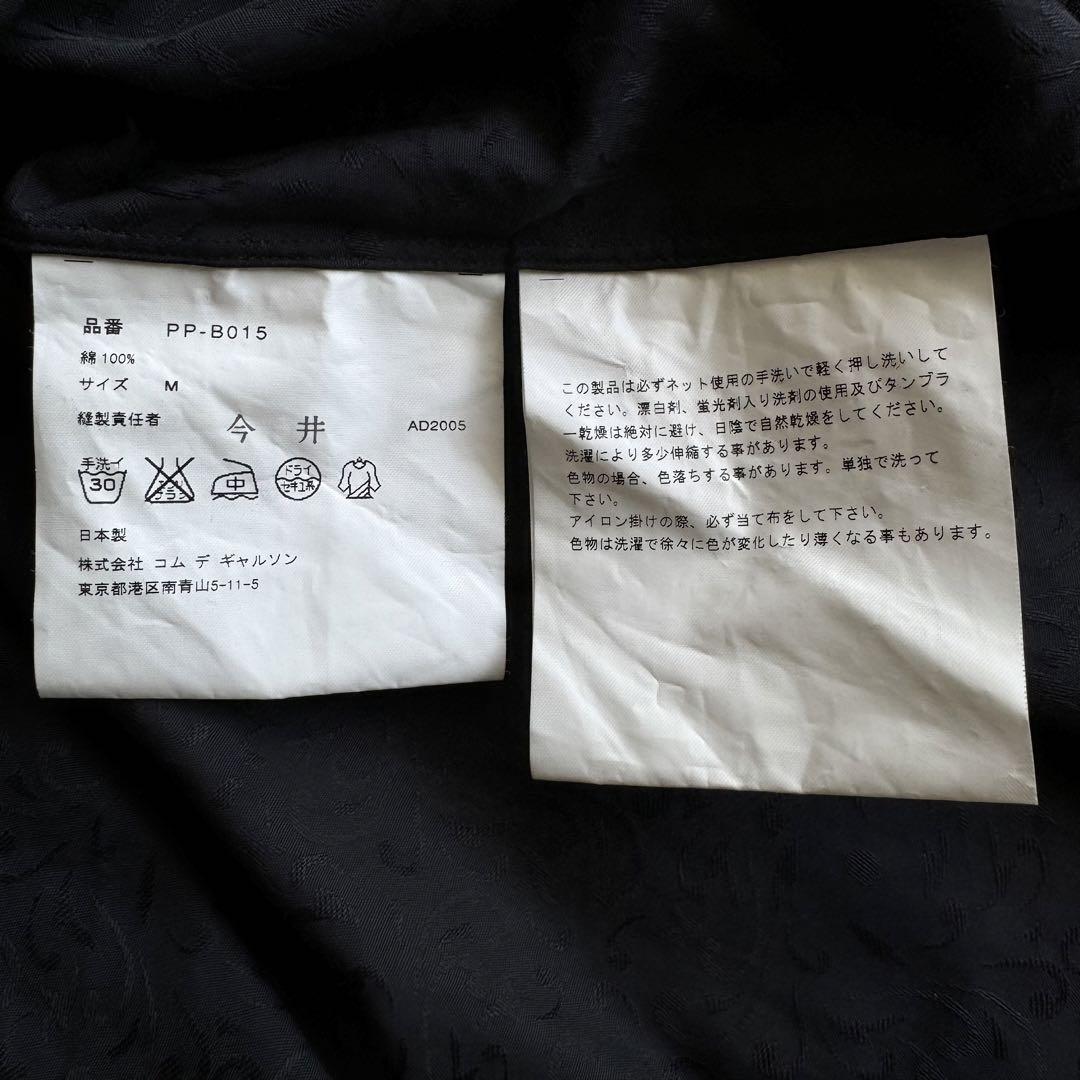 品番 PP-B015
綿100%
サイズ M
縫製責任者 今井 AD2005
手洗イ 30 中 ドライ セキユ系
日本製
株式会社 コム デ ギャルソン
東京都港区南青山5-11-5
この製品は必ずネット使用の手洗いで軽く押し洗いして
ください。漂白剤、蛍光剤入り洗剤の使用及びタンブラ
ー乾燥は絶対に避け、日陰で自然乾燥をしてください。
洗濯により多少伸縮する事があります。
色物の場合、色落ちする事があります。単独で洗って
下さい。
アイロン掛けの際、必ず当て布をして下さい。
色物は洗濯で徐々に色が変化したり薄くなる事もあります。